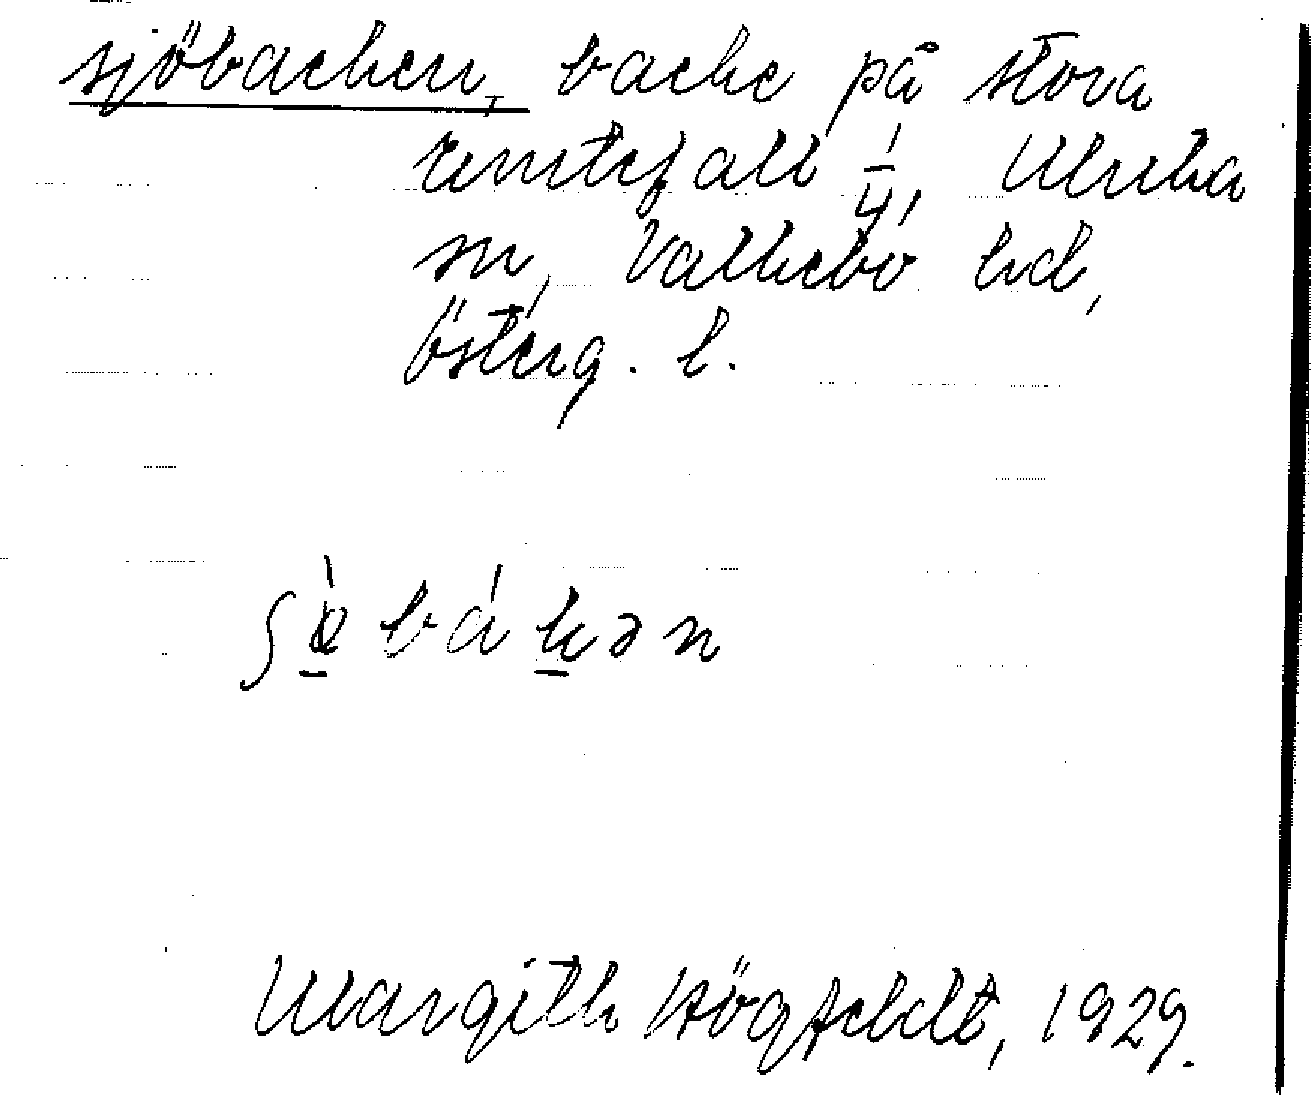 sjöbacken, backe på stora
Rinstefall 1/4, Ulrika
sn, Valkebo hd,
Österg. l.
ʃø̀bákən
Margith Högfeldt, 1929.